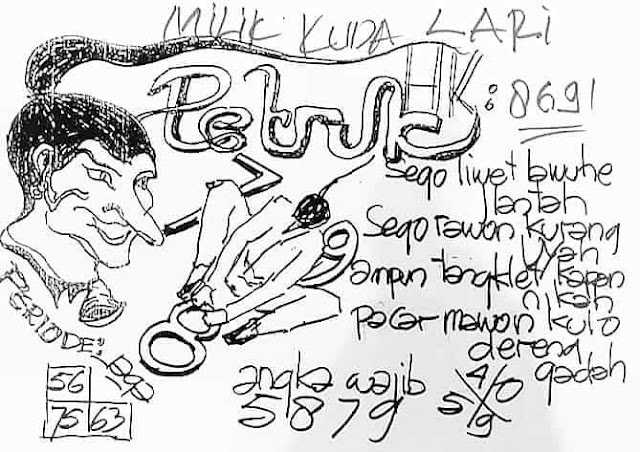 MILIK KUDA LARI
HK : 8691
Sego liwet bawuhe
jantah
Sego rawon kurang
uyah
ampun tangklet kapan
nikah
pacar mawon kulo
dereng
gadah
PERIODE:
angka wajib
5879
5 4/0 9
56
75 63